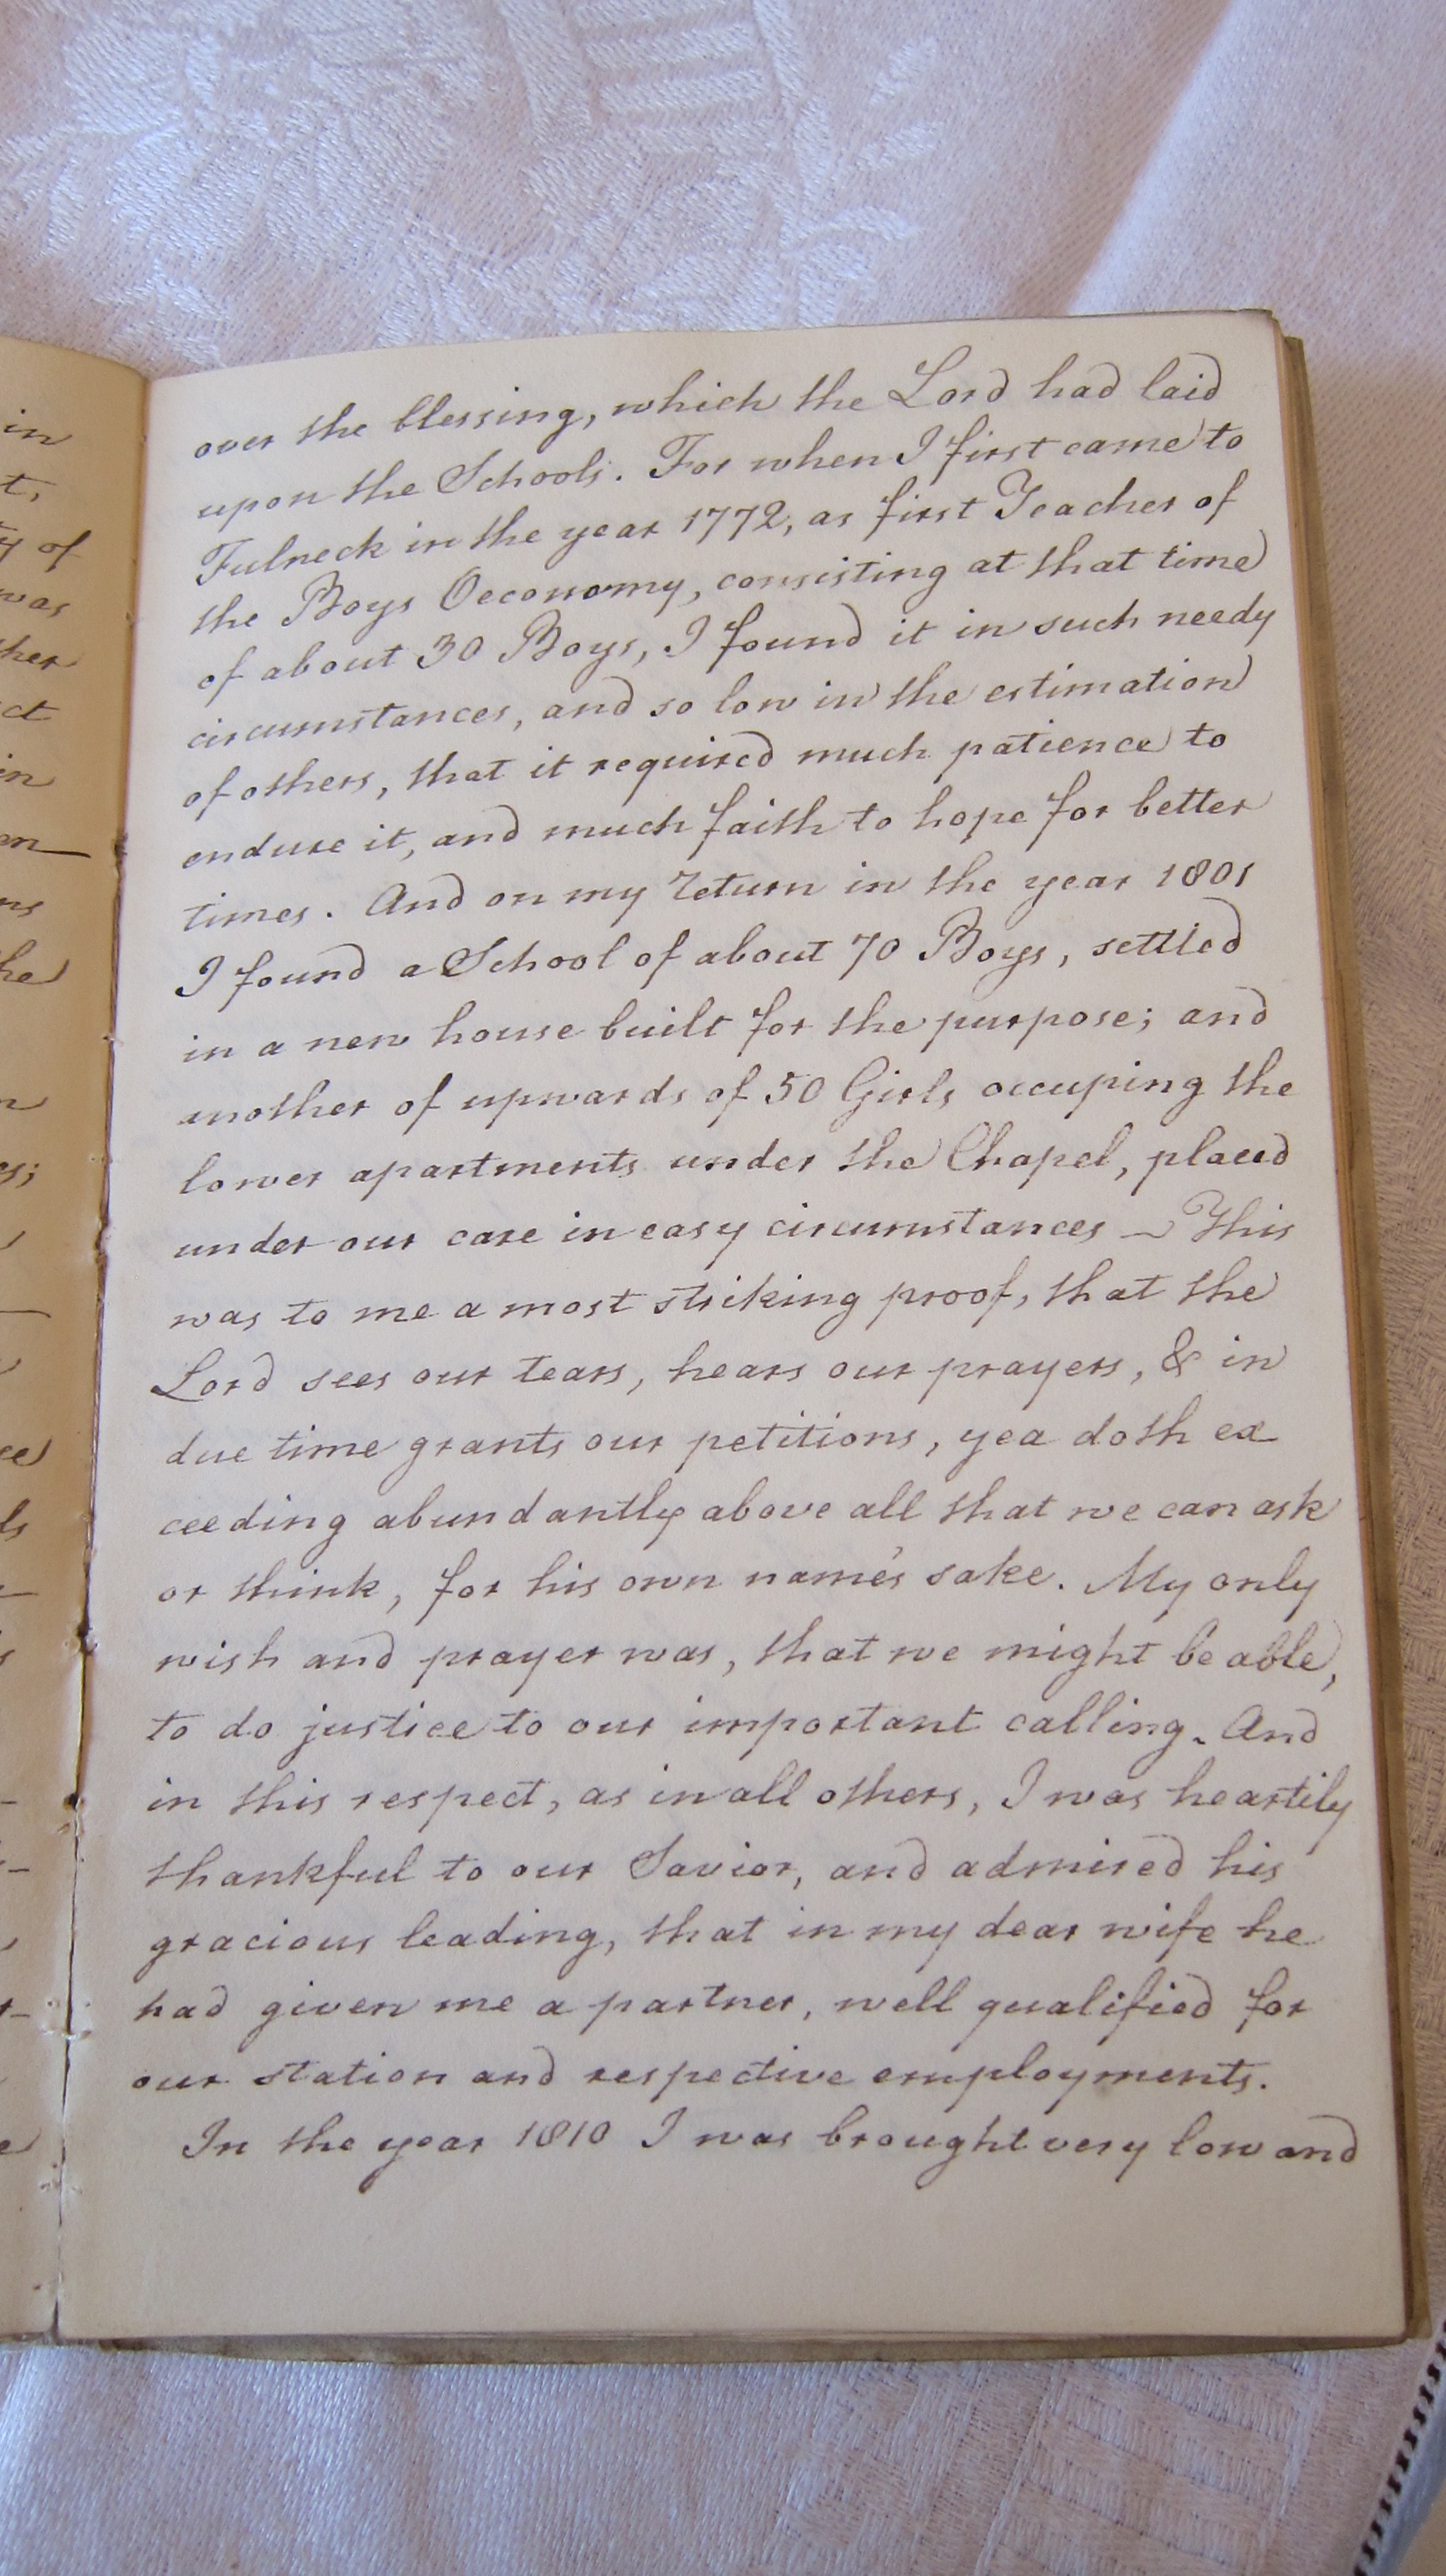 in
t,
ty of
was
ther
ct
in
en
ns
he
n
es;
ee
ls
over the blessing, which the Lord had laid
upon the Schools. For when I first came to
Fulneck in the year 1772, as first Teacher of
the Boys Oeconomy, consisting at that time
of about 30 Boys, I found it in such needy
circumstances, and so low in the estimation
of others, that it required much patience to
endure it, and much faith to hope for better
times. And on my return in the year 1801
I found a School of about 70 Boys, settled
in a new house built for the purpose; and
another of upwards of 50 Girls occuping the
lower apartments under the Chapel, placed
under our care in easy circumstances — This
was to me a most striking proof, that the
Lord sees our tears, hears our prayers, & in
due time grants our petitions, yea doth ex
ceeding abundantly above all that we can ask
or think, for his own name's sake. My only
wish and prayer was, that we might be able,
to do justice to our important calling. And
in this respect, as in all others, I was heartily
thankful to our Savior, and admired his
gracious leading, that in my dear wife he
had given me a partner, well qualified for
our station and respective employments.
In the year 1810 I was brought very low and